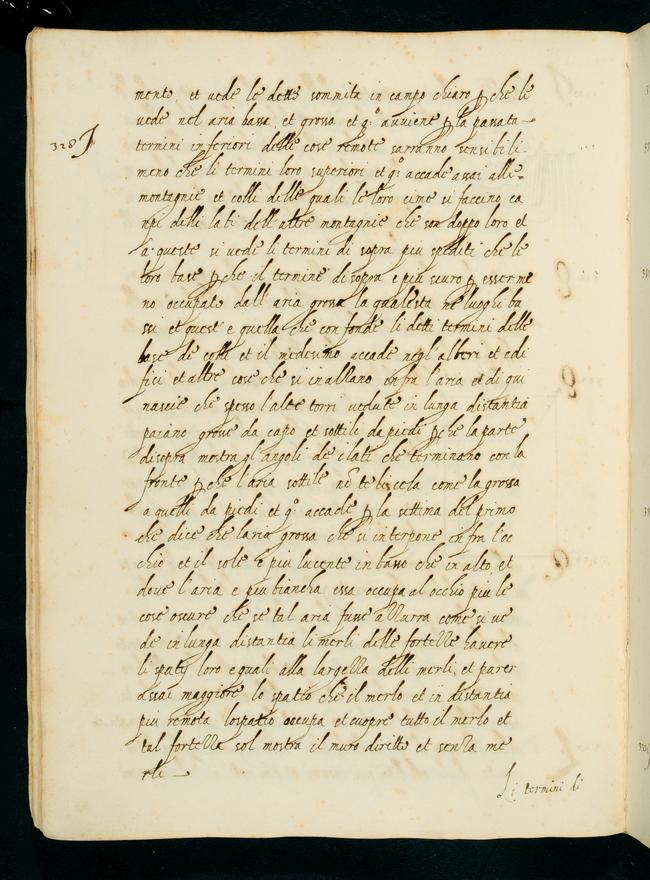 mento, et uede le dette sommita in campo chiaro p che le
uede nel aria bassa, et grossa et q.o auuiene p la passata
328
termini inferiori delle cose remote sarranno sensibili
meno che li termini loro superiori et q.o accade assai alle
montagnie et colli delle quali le loro cime si faccino ca
mpi delli lati dell'altre montagnie che son doppo loro et
a queste si uede li termini di sopra piu spediti che le
loro base p che el termine disopra e piu scuro p esser me
no occupato dall'aria grossa la quale sta ne luoghi ba
ssi et quest'e quella che confonde li detti termini delle
base de colli et il medesimo accade negl'alberi et edi
fici et altre cose che si inalzano infra l'aria et di qui
nascie che spesso l'alte torri uedute in lunga distantia
paiano grosse da capo et sottili da piedi p che la parte
disopra mostra gl'angoli de i lati che terminano con la
fronte p che l'aria sottile no te li cela come la grossa
a quelli da piedi et q.o accade p la settima del primo
che dice che l'aria grossa che si interpone infra l'oc
chio et il sole e piu lucente in basso che in alto, et
doue l'aria e piu biancha essa occupa al occhio piu le
cose oscure che se tal aria fusse azzurra come si ue
de in lunga distantia li merli delle fortezze hauere
li spatij loro equali alla largezza delli merli, et parer
assai maggiore lo spatio che'l merlo et in distantia
piu remota lo spatio occupa et cuopre tutto il merlo et
tal fortezza sol mostra il muro diritto et senza me
rli
Li termini di